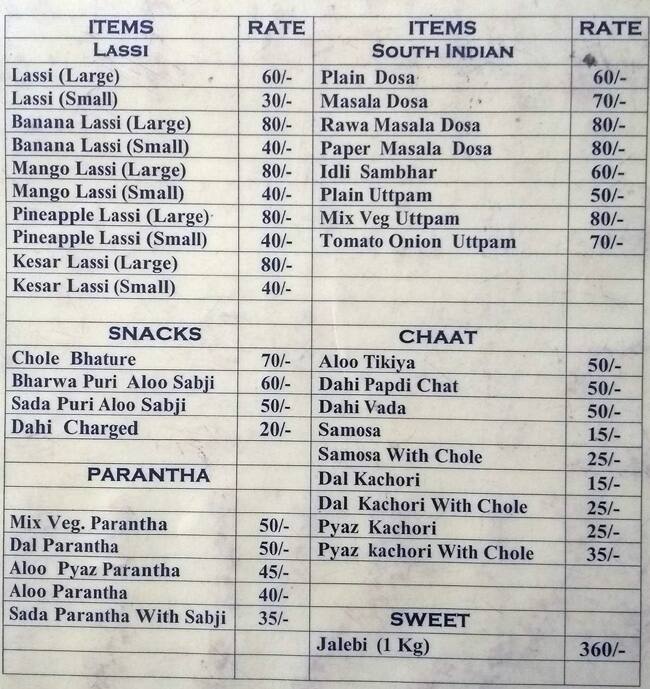 ITEMS RATE
LASSI
Lassi (Large) 60/-
Lassi (Small) 30/-
Banana Lassi (Large) 80/-
Banana Lassi (Small) 40/-
Mango Lassi (Large) 80/-
Mango Lassi (Small) 40/-
Pineapple Lassi (Large) 80/-
Pineapple Lassi (Small) 40/-
Kesar Lassi (Large) 80/-
Kesar Lassi (Small) 40/-
SNACKS
Chole Bhature 70/-
Bharwa Puri Aloo Sabji 60/-
Sada Puri Aloo Sabji 50/-
Dahi Charged 20/-
PARANTHA
Mix Veg. Parantha 50/-
Dal Parantha 50/-
Aloo Pyaz Parantha 45/-
Aloo Parantha 40/-
Sada Parantha With Sabji 35/-
ITEMS RATE
SOUTH INDIAN
Plain Dosa 60/-
Masala Dosa 70/-
Rawa Masala Dosa 80/-
Paper Masala Dosa 80/-
Idli Sambhar 60/-
Plain Uttpam 50/-
Mix Veg Uttpam 80/-
Tomato Onion Uttpam 70/-
CHAAT
Aloo Tikiya 50/-
Dahi Papdi Chat 50/-
Dahi Vada 50/-
Samosa 15/-
Samosa With Chole 25/-
Dal Kachori 15/-
Dal Kachori With Chole 25/-
Pyaz Kachori 25/-
Pyaz kachori With Chole 35/-
SWEET
Jalebi (1 Kg) 360/-